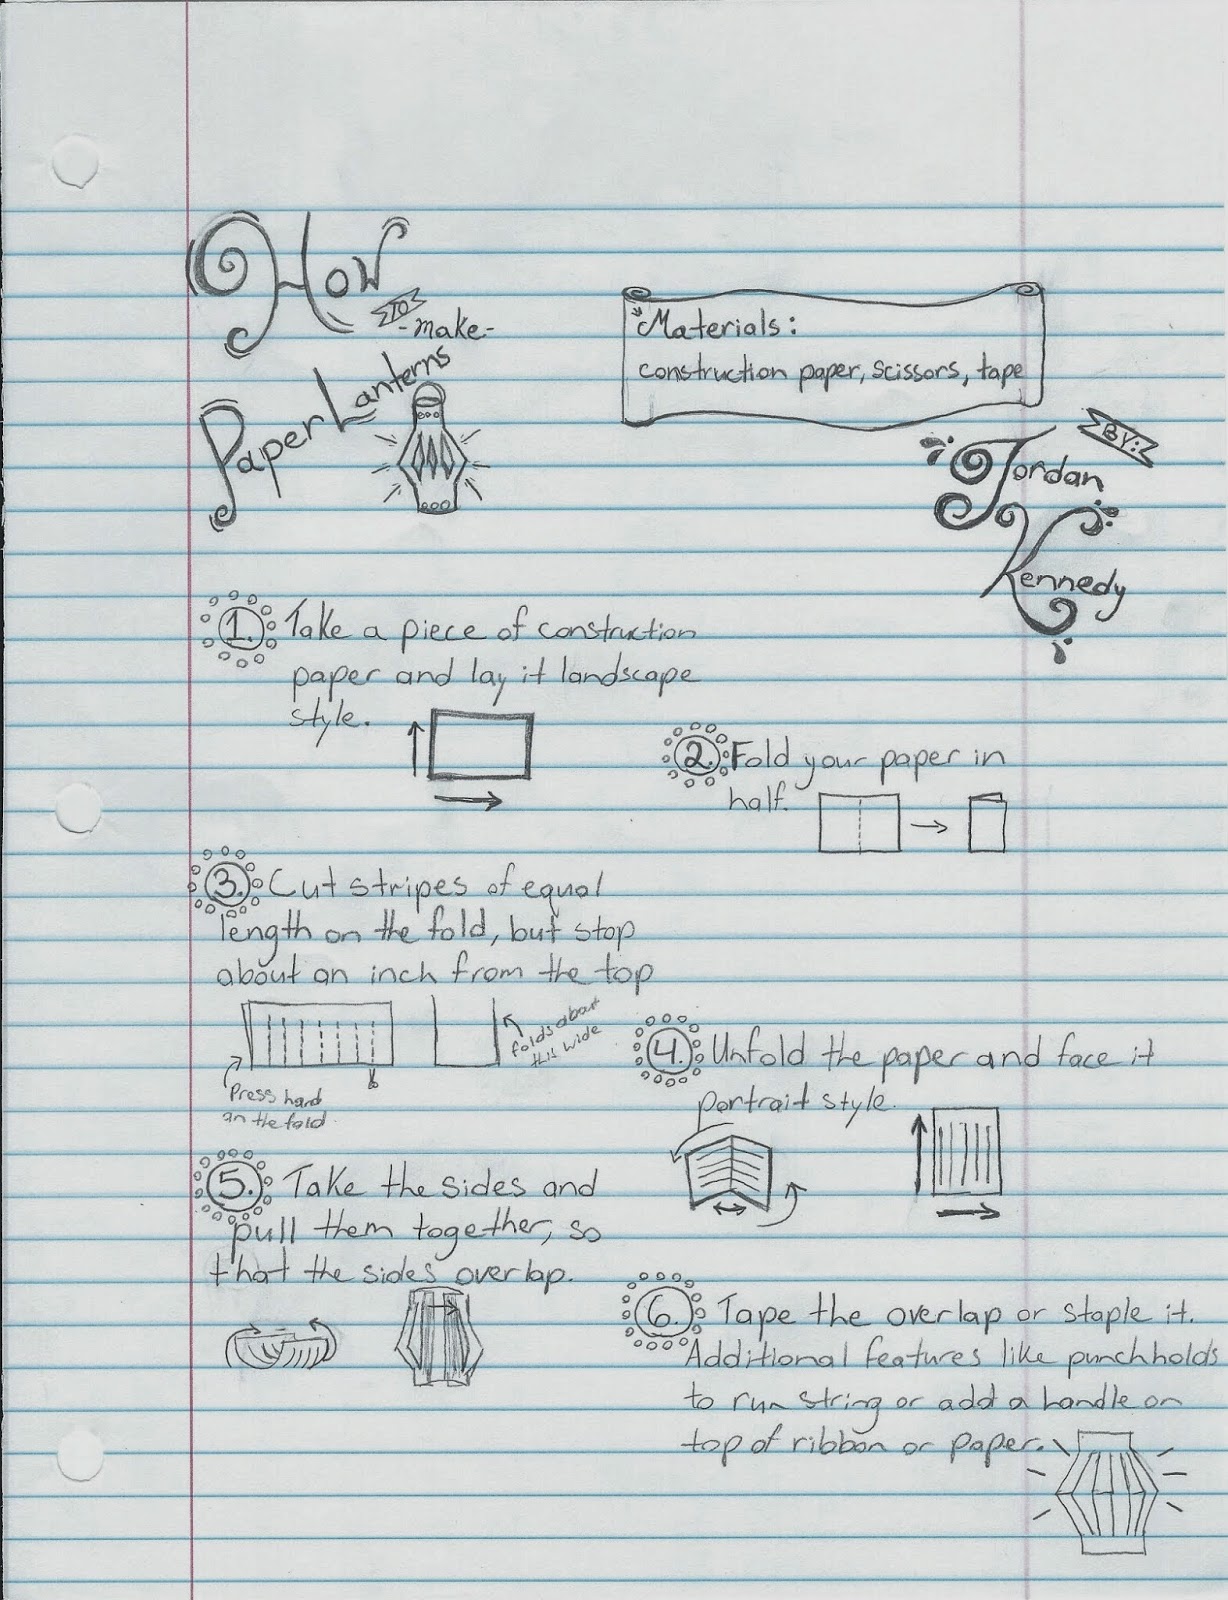 How
TO
-make-
Paper Lanterns
Materials:
construction paper, scissors, tape
BY:
Jordan
Kennedy
1. Take a piece of construction
paper and lay it landscape
style.
2. Fold your paper in
half.
3. Cut stripes of equal
length on the fold, but stop
about an inch from the top
folds about
this wide
Press hard
on the fold.
4. Unfold the paper and face it
portrait style.
5. Take the sides and
pull them together, so
that the sides overlap.
6. Tape the overlap or staple it.
Additional features like punch holds
to run string or add a handle on
top of ribbon or paper.